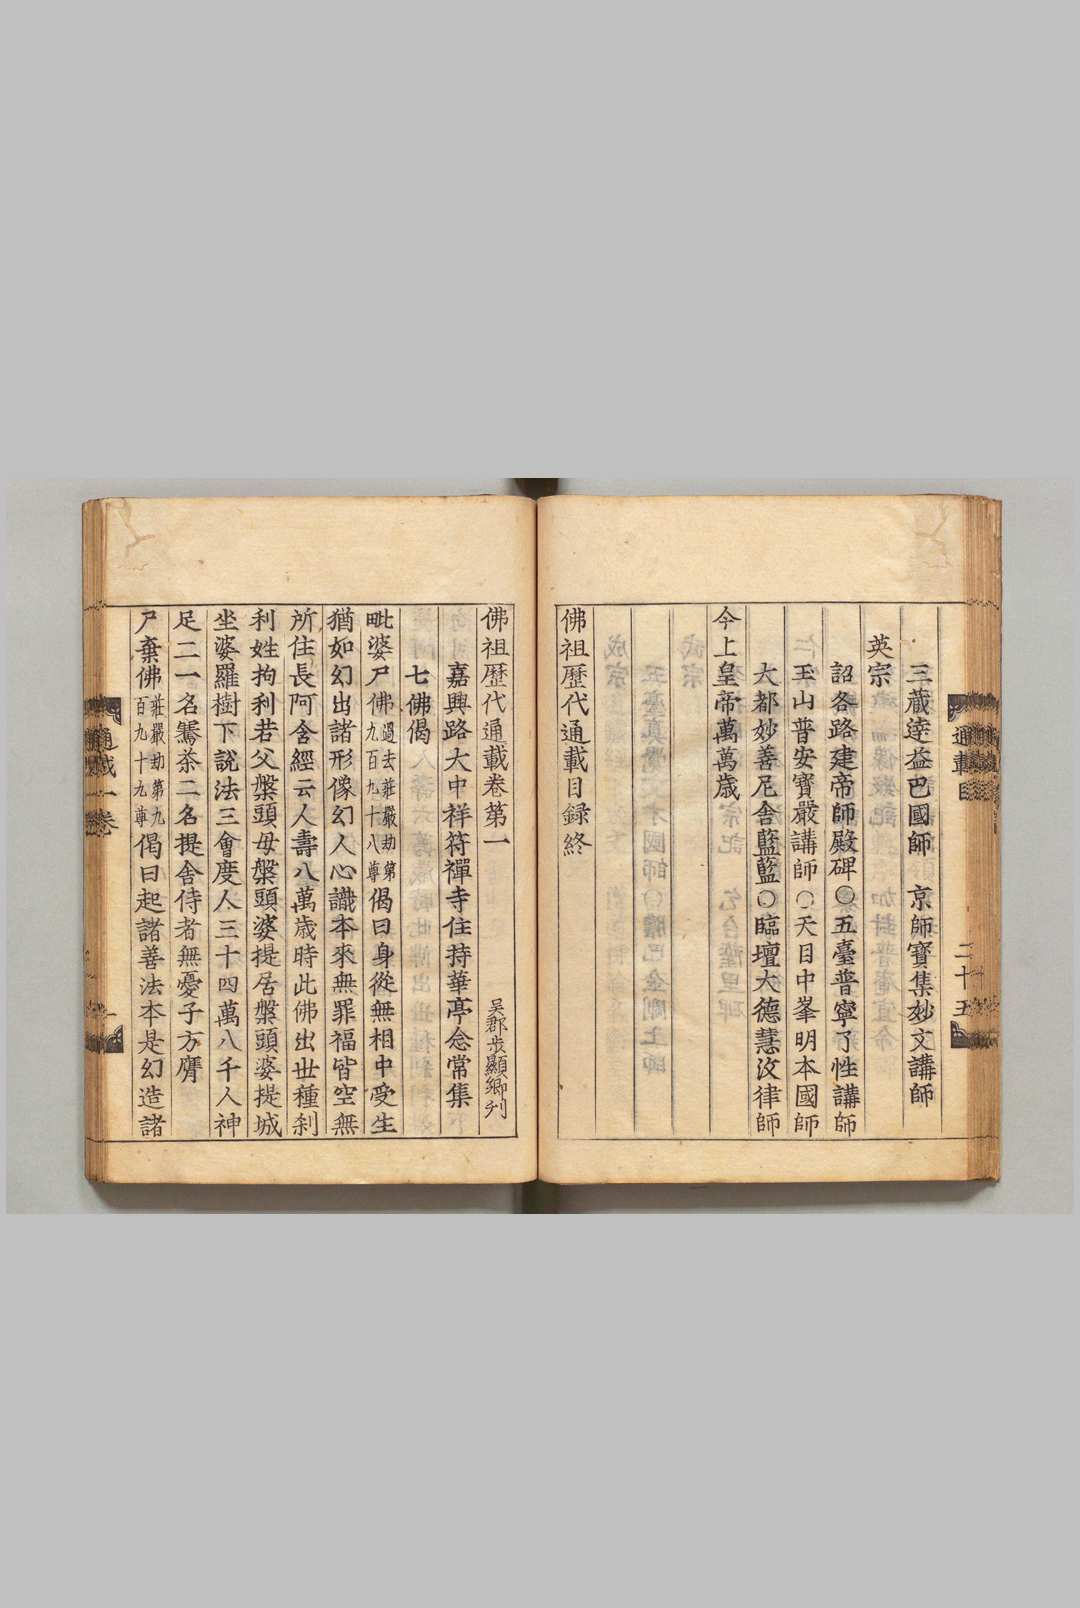 三藏達益巴國師　京師寶集妙文講師
英宗
詔各路建帝師殿碑〇五臺普寧了性講師
玉山普安寶嚴講師〇天目中峯明本國師
大都妙善尼舍藍藍〇臨壇大德慧汶律師
今上皇帝萬萬歲
佛祖歷代通載目録終
通載目
二十五
佛祖歷代通載卷第一
吳郡步顯卿刋
嘉興路大中祥符禪寺住持華亭念常集
七佛偈
毗婆尸佛過去莊嚴劫第九百九十八尊偈曰身從無相中受生
猶如幻出諸形像幻人心識本來無罪福皆空無
所住長阿含經云人壽八萬歲時此佛出世種刹
利姓拘利若父槃頭母槃頭婆提居槃頭婆提城
坐婆羅樹下說法三會度人三十四萬八千人神
足二一名騫茶二名提舍侍者無憂子方膺
尸棄佛莊嚴劫第九百九十九尊偈曰起諸善法本是幻造諸
通載一卷
一